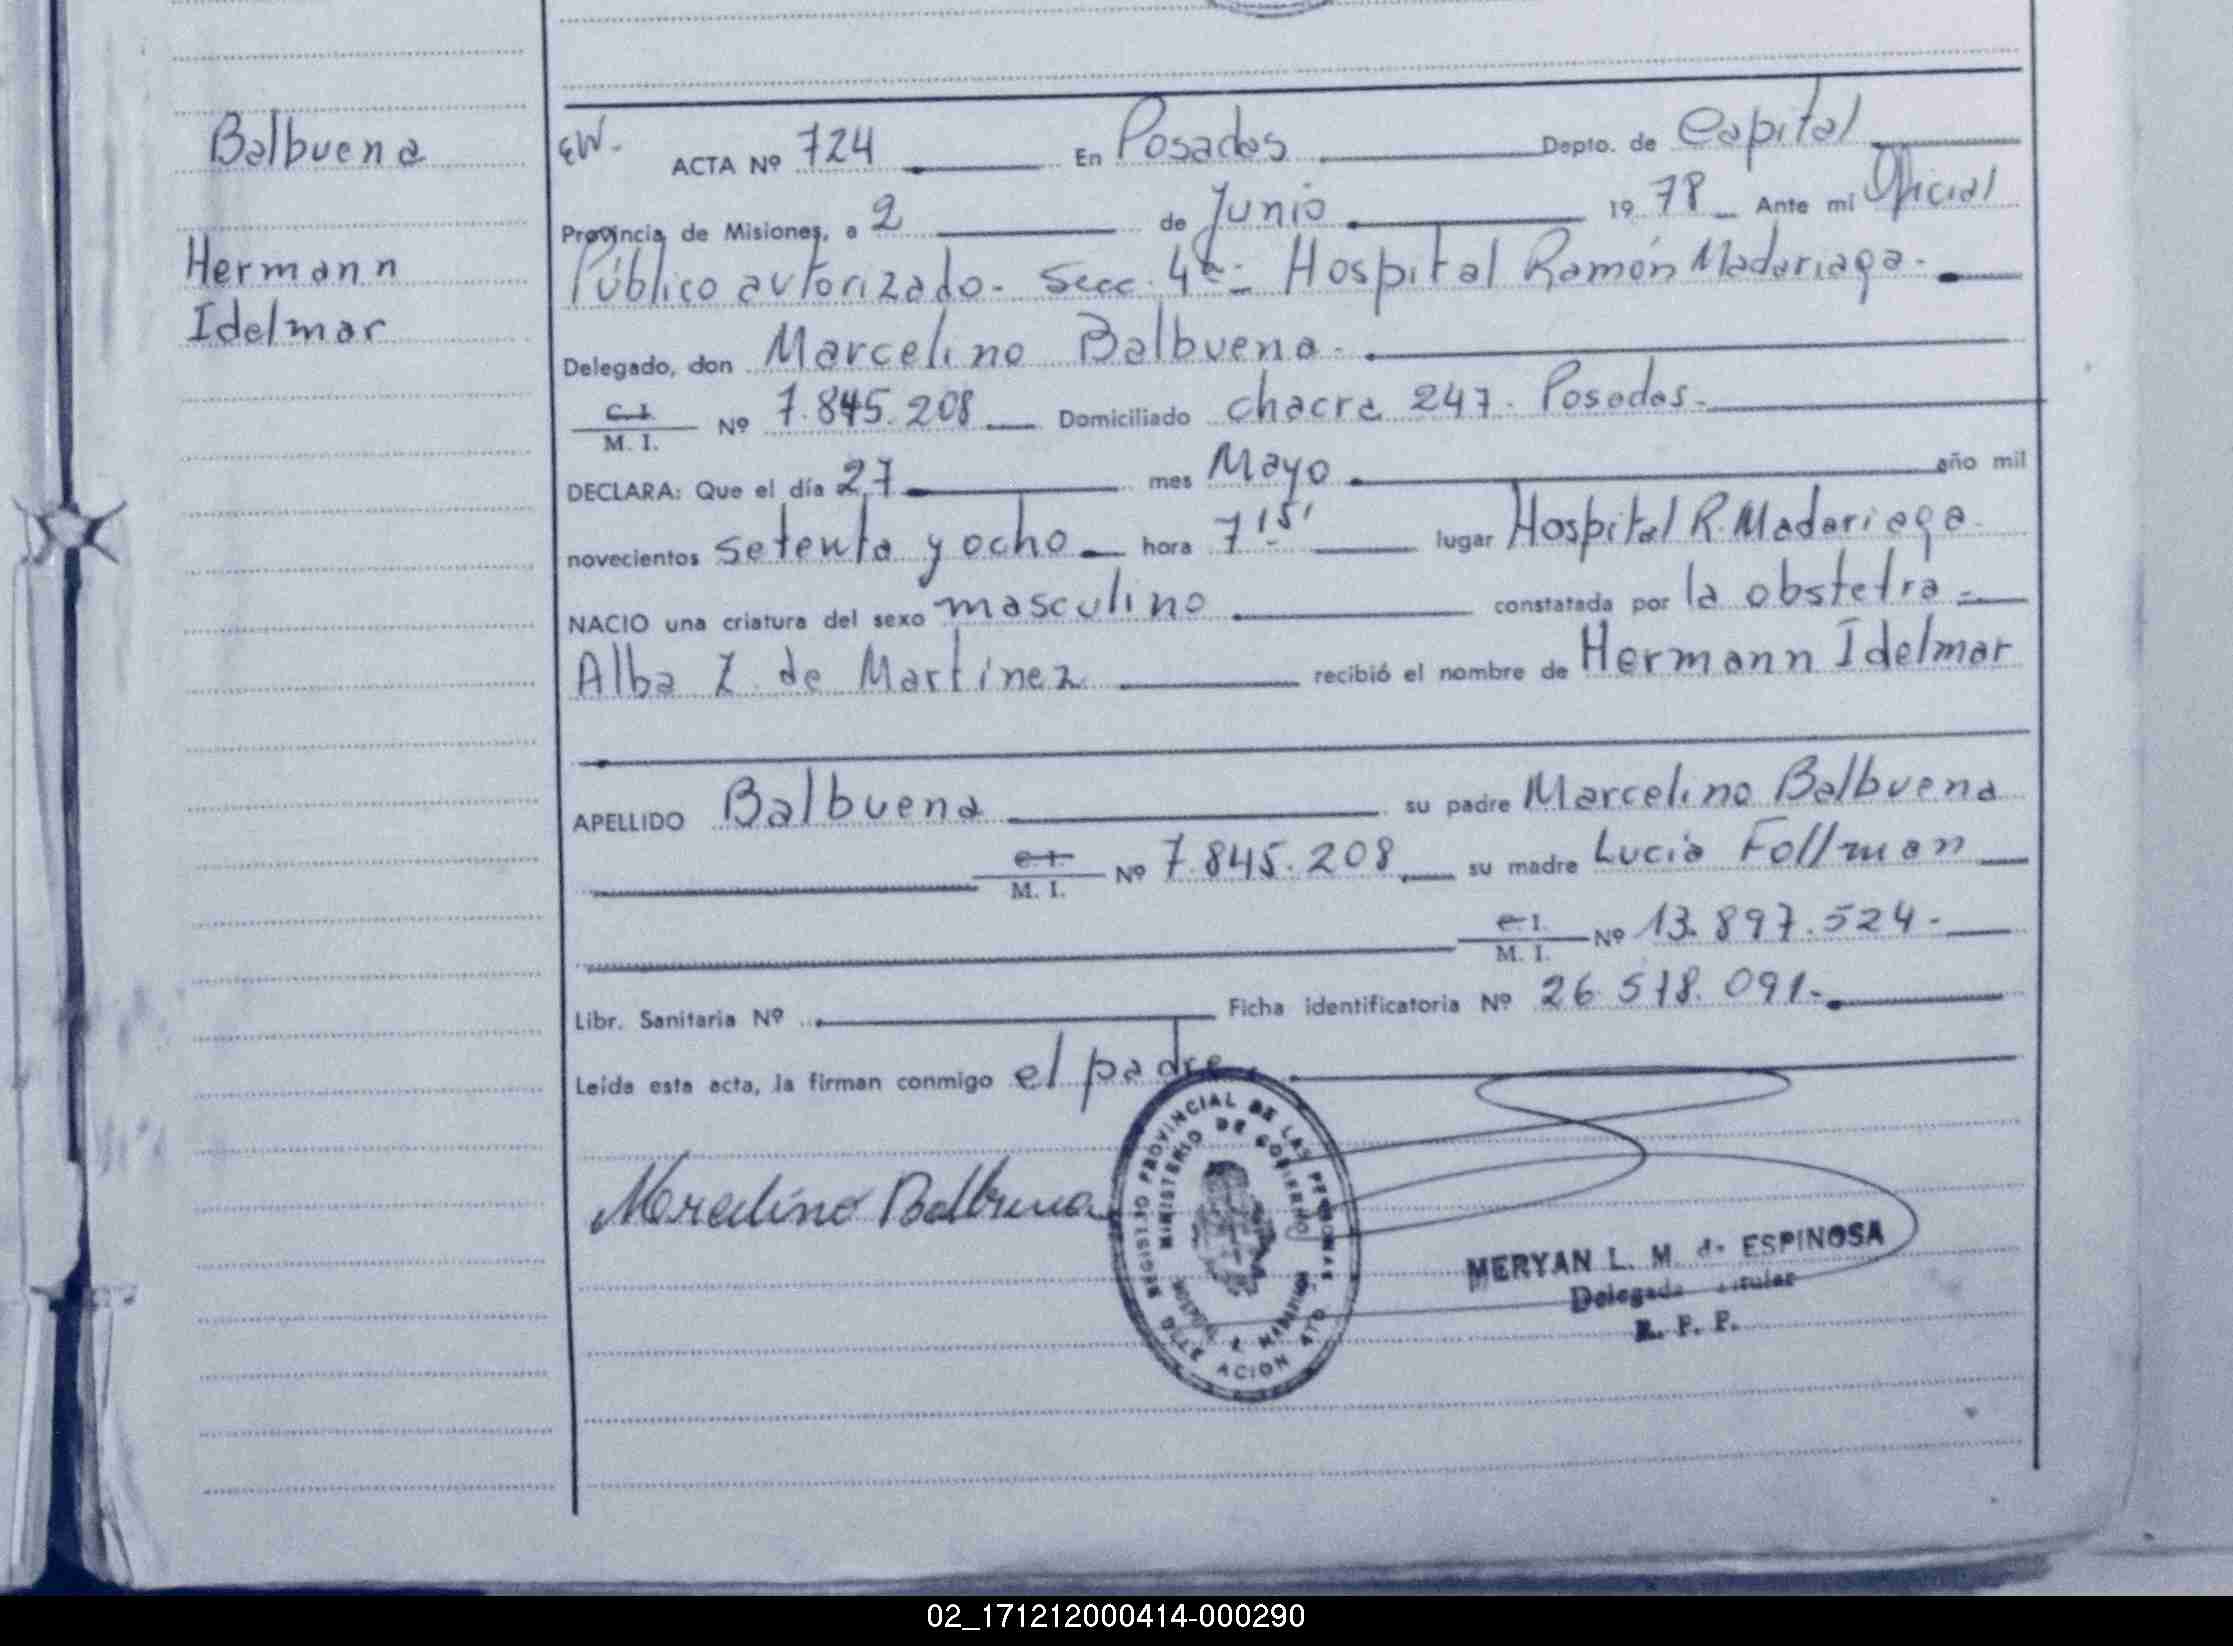 Balbuena
Hermann
Idelmar
EW. ACTA Nº 724 En Posadas Depto. de Capital
Provincia de Misiones, a 2 de Junio 1978 Ante mi Oficial
Público autorizado - Secc. 4ª - Hospital Ramón Madariaga -
Delegado, don Marcelino Balbuena -
C. I. M. I. Nº 7.845.208 Domiciliado chacra 247 - Posadas -
DECLARA: Que el día 27 mes Mayo año mil
novecientos setenta y ocho hora 7 15' lugar Hospital R. Madariaga
NACIO una criatura del sexo masculino constatada por la obstetra -
Alba Z. de Martinez recibió el nombre de Hermann Idelmar
APELLIDO Balbuena su padre Marcelino Balbuena
C. I. M. I. Nº 7.845.208 su madre Lucia Follman
C. I. M. I. Nº 13.897.524 -
Libr. Sanitaria Nº Ficha identificatoria Nº 26.518.091 -
Leída esta acta, la firman conmigo el padre
Marcelino Balbuena
REGISTRO PROVINCIAL DE LAS PERSONAS
MINISTERIO DE GOBIERNO
MISIONES
MERYAN L. M. de ESPINOSA
Delegada Titular
R. P. P.
02_171212000414-000290